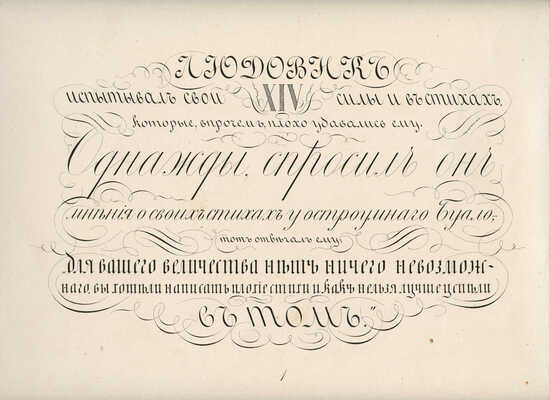 ЛЮДОВИКЪ
испытывалъ свои XIV силы и въ стихахъ,
которые, впрочемъ, плохо удавались ему.
Однажды, спросилъ онъ
мнѣнія о своихъ стихахъ у остроумнаго Буало,
тотъ отвѣчалъ ему:
„для вашего величества нѣтъ ничего невозмож-
наго, вы хотѣли написать плохіе стихи и какъ нельзя лучше успѣли
ВЪ ТОМЪ."
1